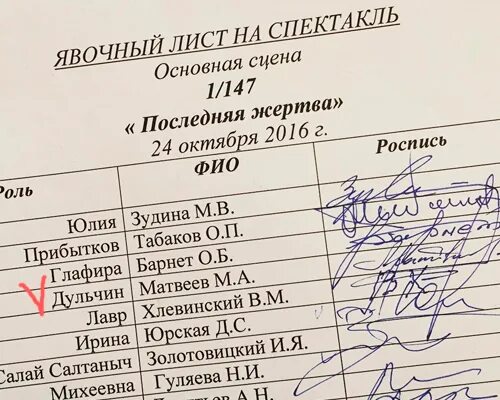 ЯВОЧНЫЙ ЛИСТ НА СПЕКТАКЛЬ
Основная сцена
1/147
« Последняя жертва»
24 октября 2016 г.
Роль ФИО Роспись
Юлия Зудина М.В.
Прибытков Табаков О.П.
Глафира Барнет О.Б.
Дульчин Матвеев М.А.
Лавр Хлевинский В.М.
Ирина Юрская Д.С.
Салай Салтаныч Золотовицкий И.Я.
Михеевна Гуляева Н.И.
А.Н.